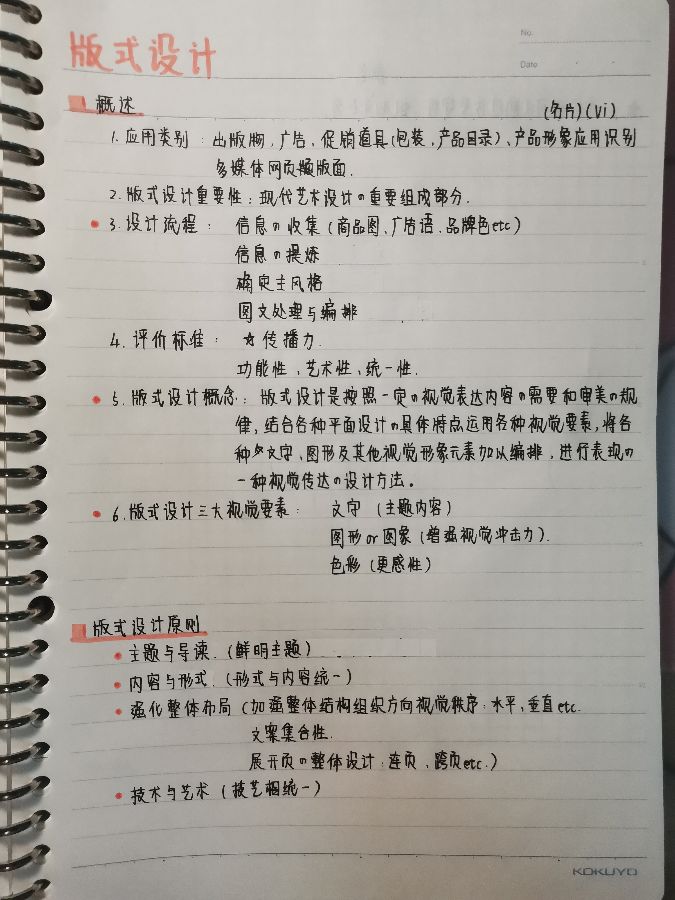 No.
版式设计
Date
概述
(名片)(vi)
1. 应用类别：出版物，广告，促销道具(包装，产品目录)，产品形象应用识别
多媒体网页频版面.
2. 版式设计重要性：现代艺术设计の重要组成部分.
3. 设计流程： 信息の收集(商品图、广告语、品牌色etc)
信息の提炼
确定主风格
图文处理与编排
4. 评价标准： ☆传播力.
功能性、艺术性、统一性.
5. 版式设计概念：版式设计是按照一定の视觉表达内容の需要和审美の规
律，结合各种平面设计の具体特点运用各种视觉要素，将各
种文字、图形及其他视觉形象元素加以编排，进行表现の
一种视觉传达の设计方法。
6. 版式设计三大视觉要素： 文字 (主题内容)
图形or图象(增强视觉冲击力).
色彩(更感性)
版式设计原则
主题与导读.(鲜明主题)
内容与形式.(形式与内容统一)
强化整体布局(加强整体结构组织方向视觉秩序：水平，垂直etc.
文案集合性.
展开页の整体设计：连页、跨页etc.)
技术与艺术(技艺相统一)
KOKUYO